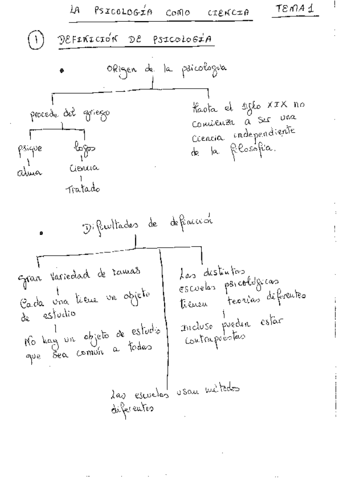 LA PSICOLOGÍA COMO CIENCIA TEMA 1
1 DEFINICIÓN DE PSICOLOGÍA
• Origen de la psicología
procede del griego
psique
alma
logos
Ciencia
Tratado
Hasta el siglo XIX no
comienza a ser una
Ciencia independiente
de la filosofía.
• Dificultades de definición
Gran variedad de ramas
Cada una tiene un objeto
de estudio
No hay un objeto de estudio
que sea común a todas
Las escuelas usan métodos
diferentes
Las distintas
escuelas psicológicas
tienen teorías diferentes
Incluso pueden estar
contrapuestas